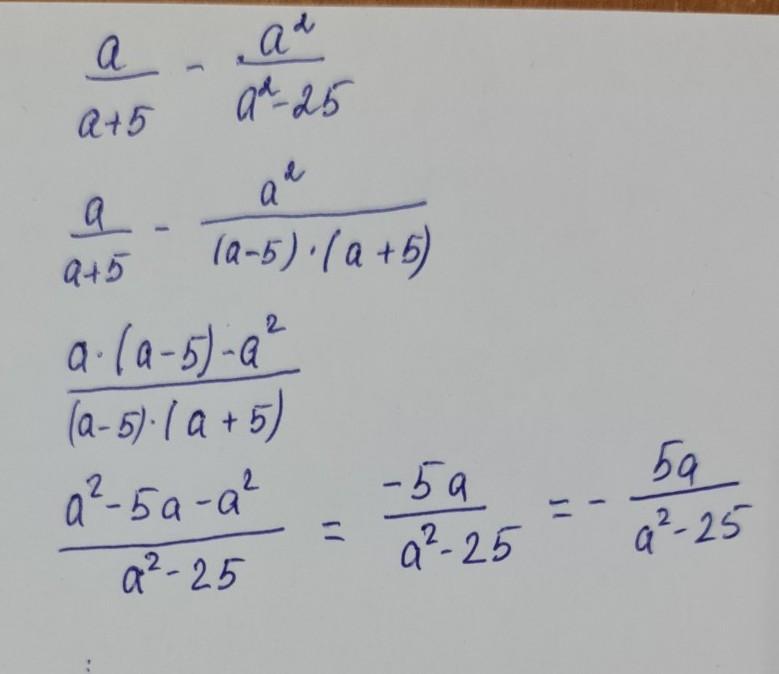 a/(a+5) - a²/(a²-25)
a/(a+5) - a²/((a-5)·(a+5))
(a·(a-5)-a²)/((a-5)·(a+5))
(a²-5a-a²)/(a²-25) = (-5a)/(a²-25) = - 5a/(a²-25)